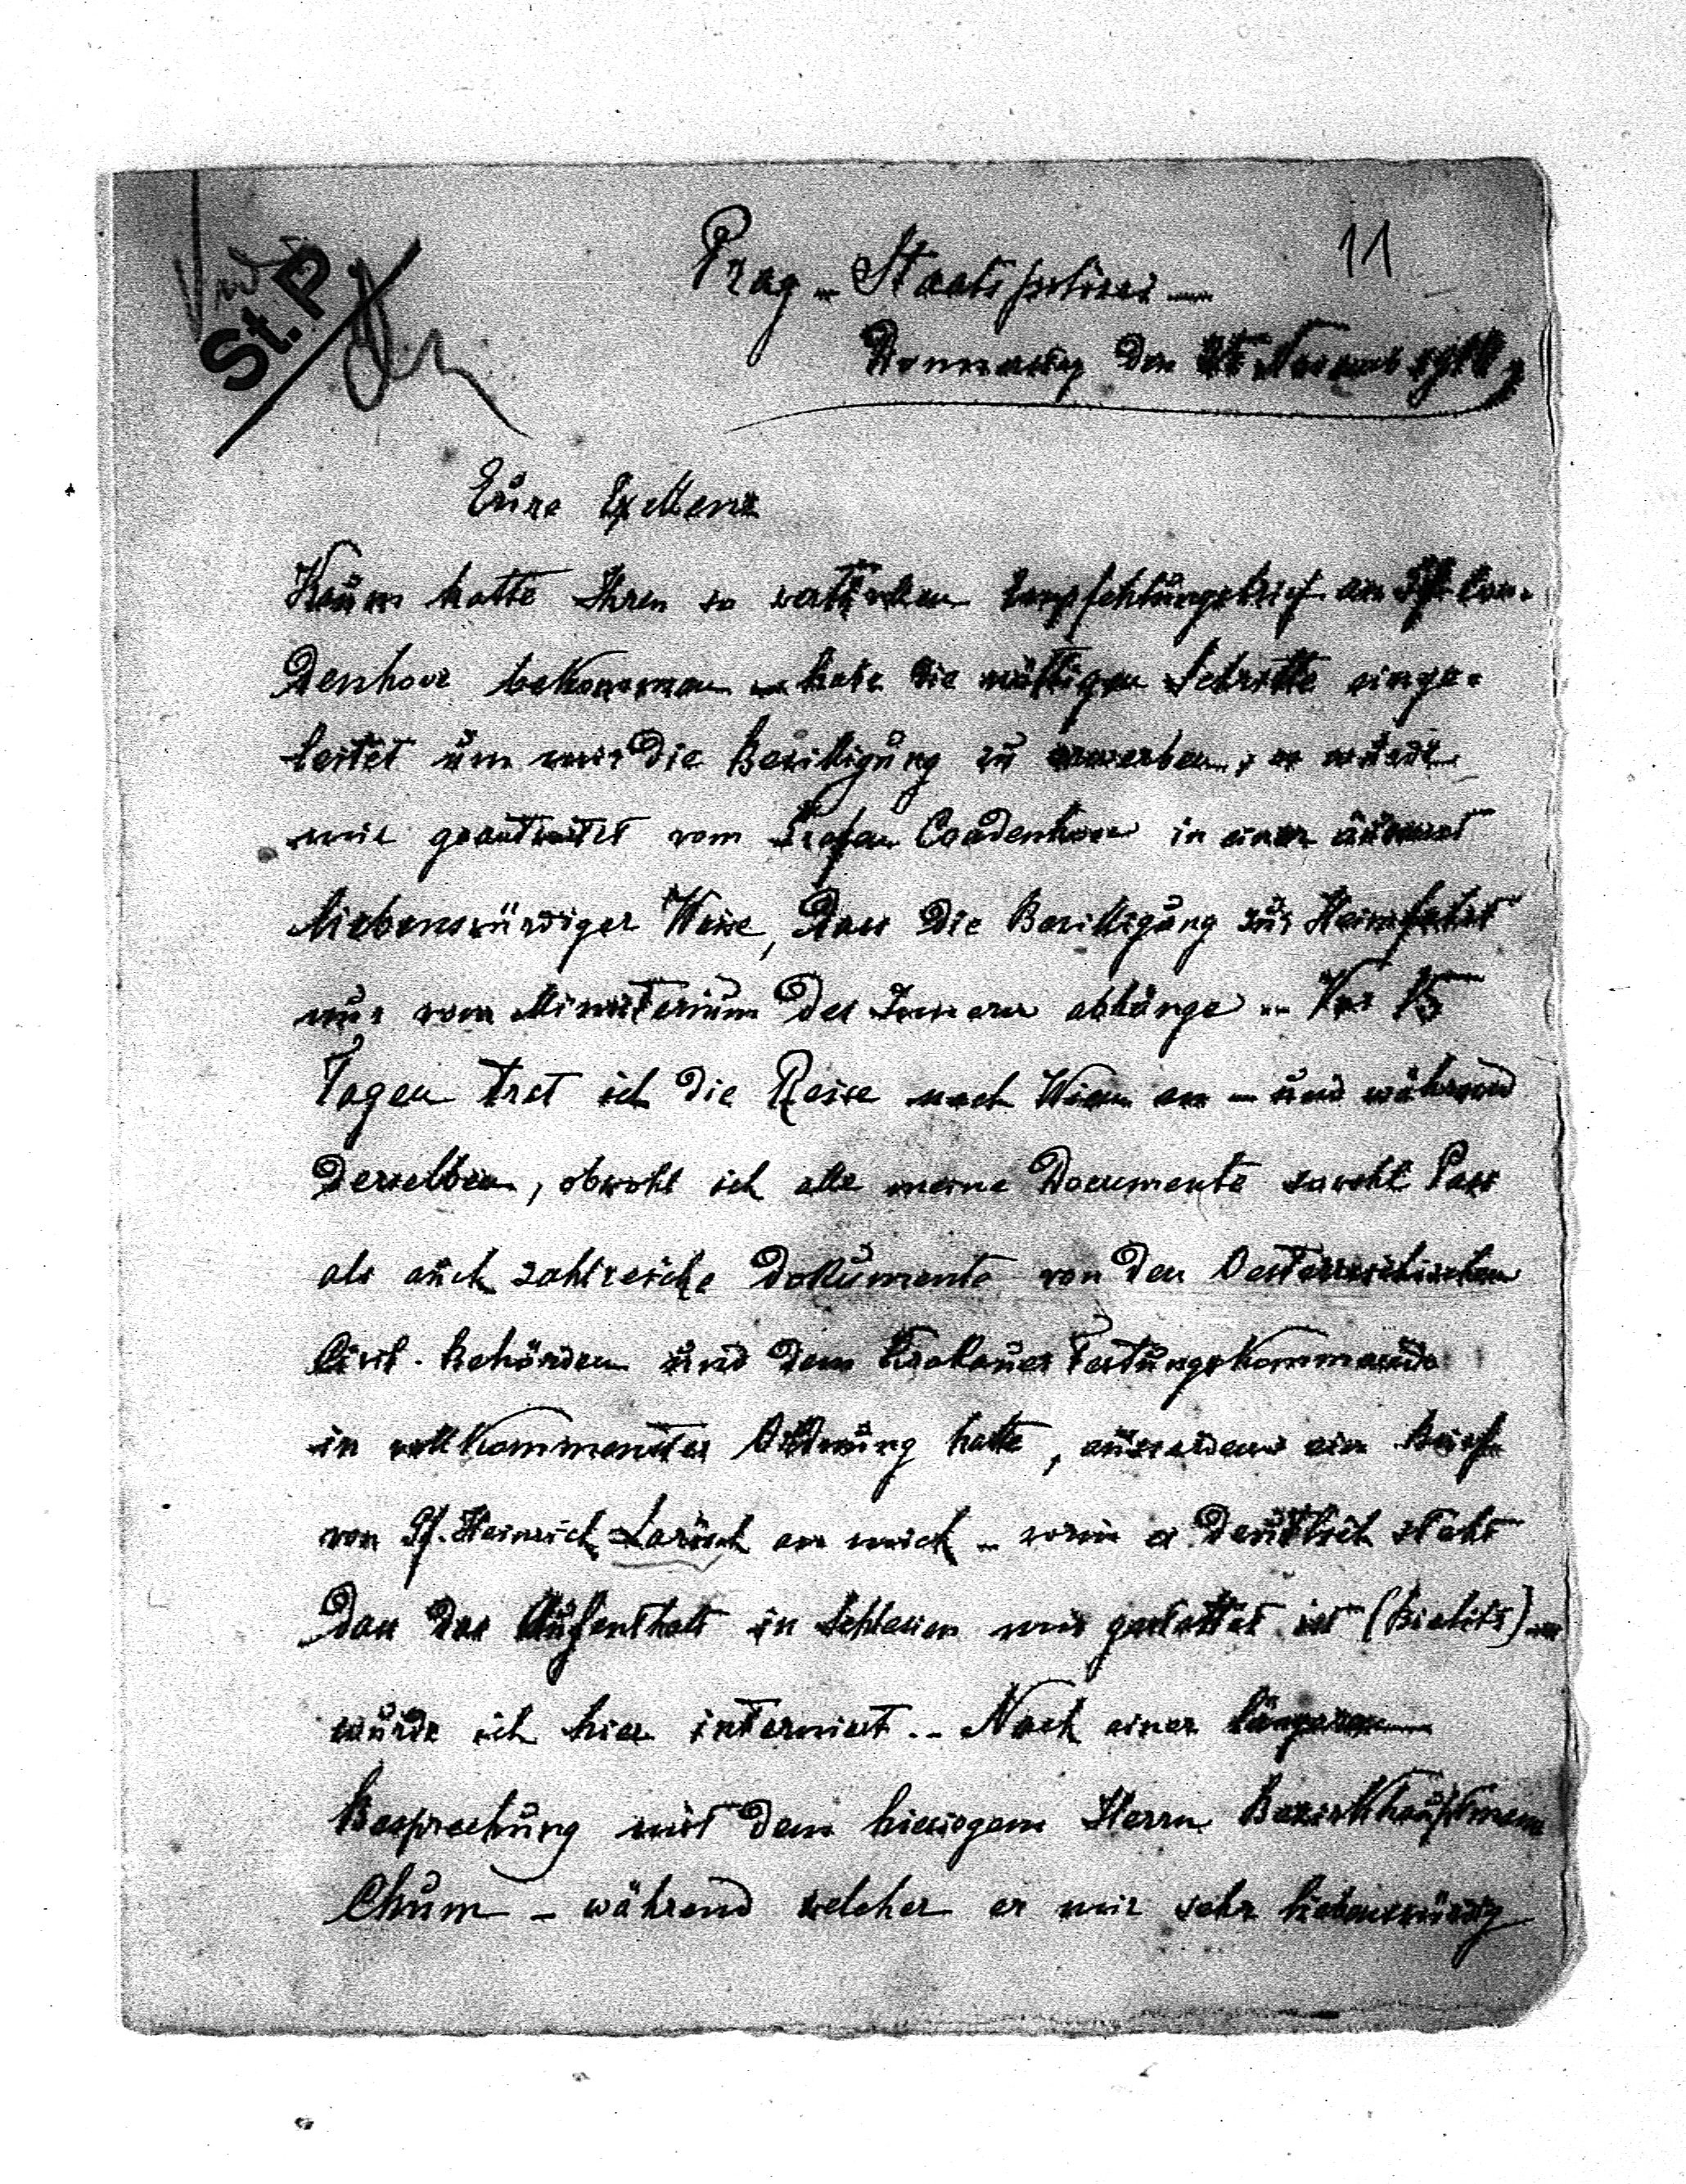 11
St. P.
Prag – Staatspolizei –
Donnerstag den
Eure Exellenz
Kaum hatte Ihren so Empfehlungsbrief an Gf. Cou-
denhove bekommen – habe die nöthigen Schritte einge-
leitet um mir die Bewilligung zu erwerben, es wurde
mir geantwortet vom Grafen Coudenhove in einer äusserst
liebenswürdiger Weise, dass die Bewilligung zur Heimfahrt
nur vom Ministerium des Innern abhänge – Vor 15
Tagen trat ich die Reise nach Wien an – und während
derselben, obwohl ich alle meine Documente sowohl Pass
als auch zahlreiche Dokumente von den Oesterreichischen
Civil-Behörden und dem Krakauer Festungskommando
in vollkommenster Ordnung hatte, ausserdem ein Brief
von Gf. Heinrich Larisch an mich – worin es deutlich steht
dass der Aufenthalt in Schlesien mir gestattet ist (Bielitz) –
wurde ich hier interniert. – Nach einer längeren
Besprechung mit dem hiesigem Herrn Bezirkhauptmann
Chum – während welcher er mir sehr liebenswürdig